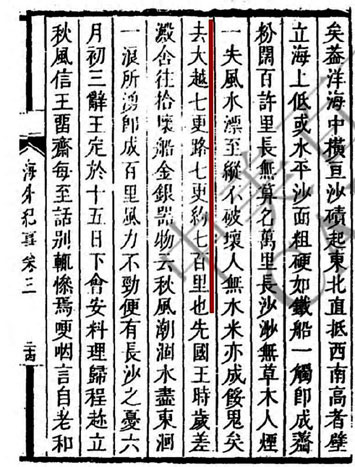 矣蓋洋海中橫亘沙磧起東北直抵西南高者壁
立海上低或水平沙面粗硬如鐵船一觸即成齏
粉闊百許里長無算名萬里長沙渺無草木人煙
一失風水漂至縱不破壞人無水米亦成餒鬼矣
去大越七更路七更約七百里也先國王時歲差
澱舍往拾壞船金銀器物云秋風潮涸水盡東洄
一浪所湧即成百里風力不勁便有長沙之憂六
月初三辭王定於十五日下會安料理歸程趂立
秋風信王畱齋每至話別輒慘焉哽咽言自老和
海外紀事卷三